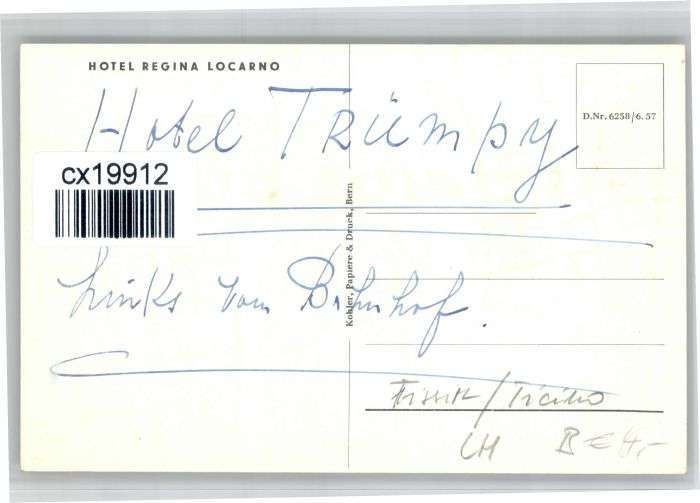 HOTEL REGINA LOCARNO
Hotel Trümpy
D.Nr. 6258/6.57
cx19912
Kohler, Papiere & Druck, Bern
Links vom Bahnhof.
/Ticino
CH